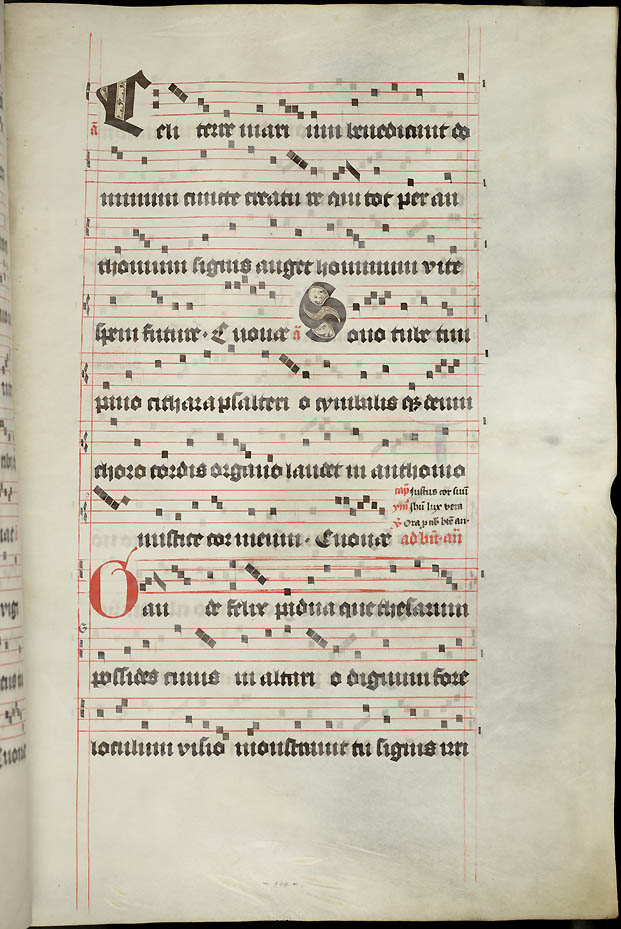 Celi terre mari um benedicant do
minum cuncte creatu re qui tot per an
thonium signis auget hominum vite
spem future. Euouae ã Sono tube tim
pano cithara psalteri o cymbalis qz deum
choro cordis organo laudet in anthonio
capm Justus cor suū
ymn Ihū lux vera
℣ Ora p nb bte an.
mistice cor meum. Euouae ad bn. an
Gau de felix padua que thesaurum
possides cuius in altari o dignum fore
loculum visio monstravit tu signis uri